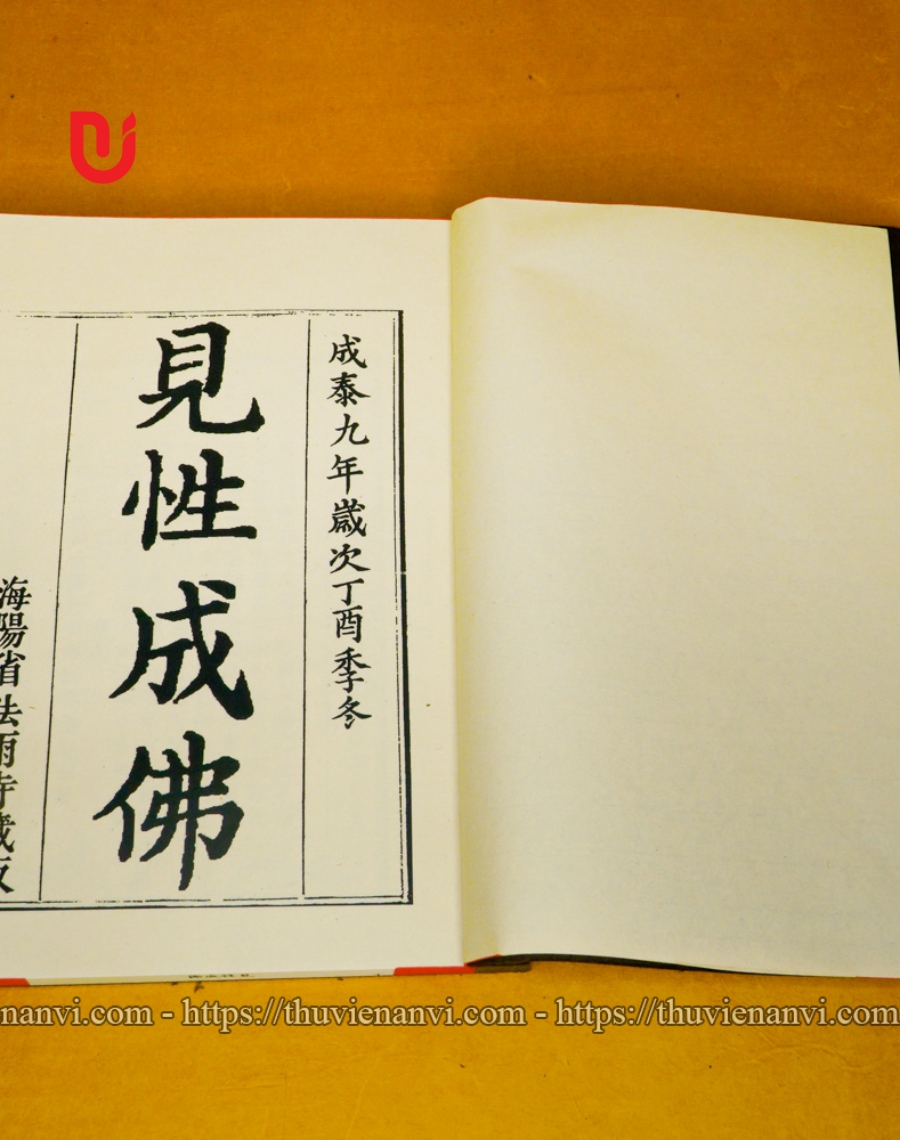 成泰九年歲次丁酉季冬
見性成佛
海陽省法雨寺藏板
nanvi.com - https://thuvienanvi.com - https://thuvienanvi.com